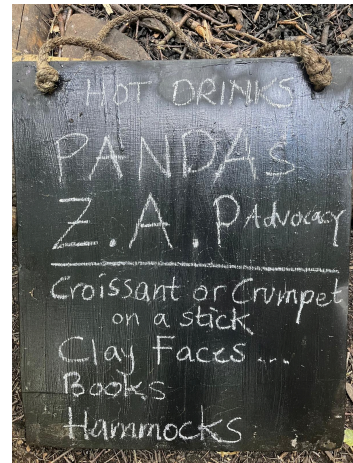 HOT DRINKS
PANDAs
Z.A.P Advocacy
Croissant or Crumpet
on a stick
Clay Faces ...
Books
Hammocks